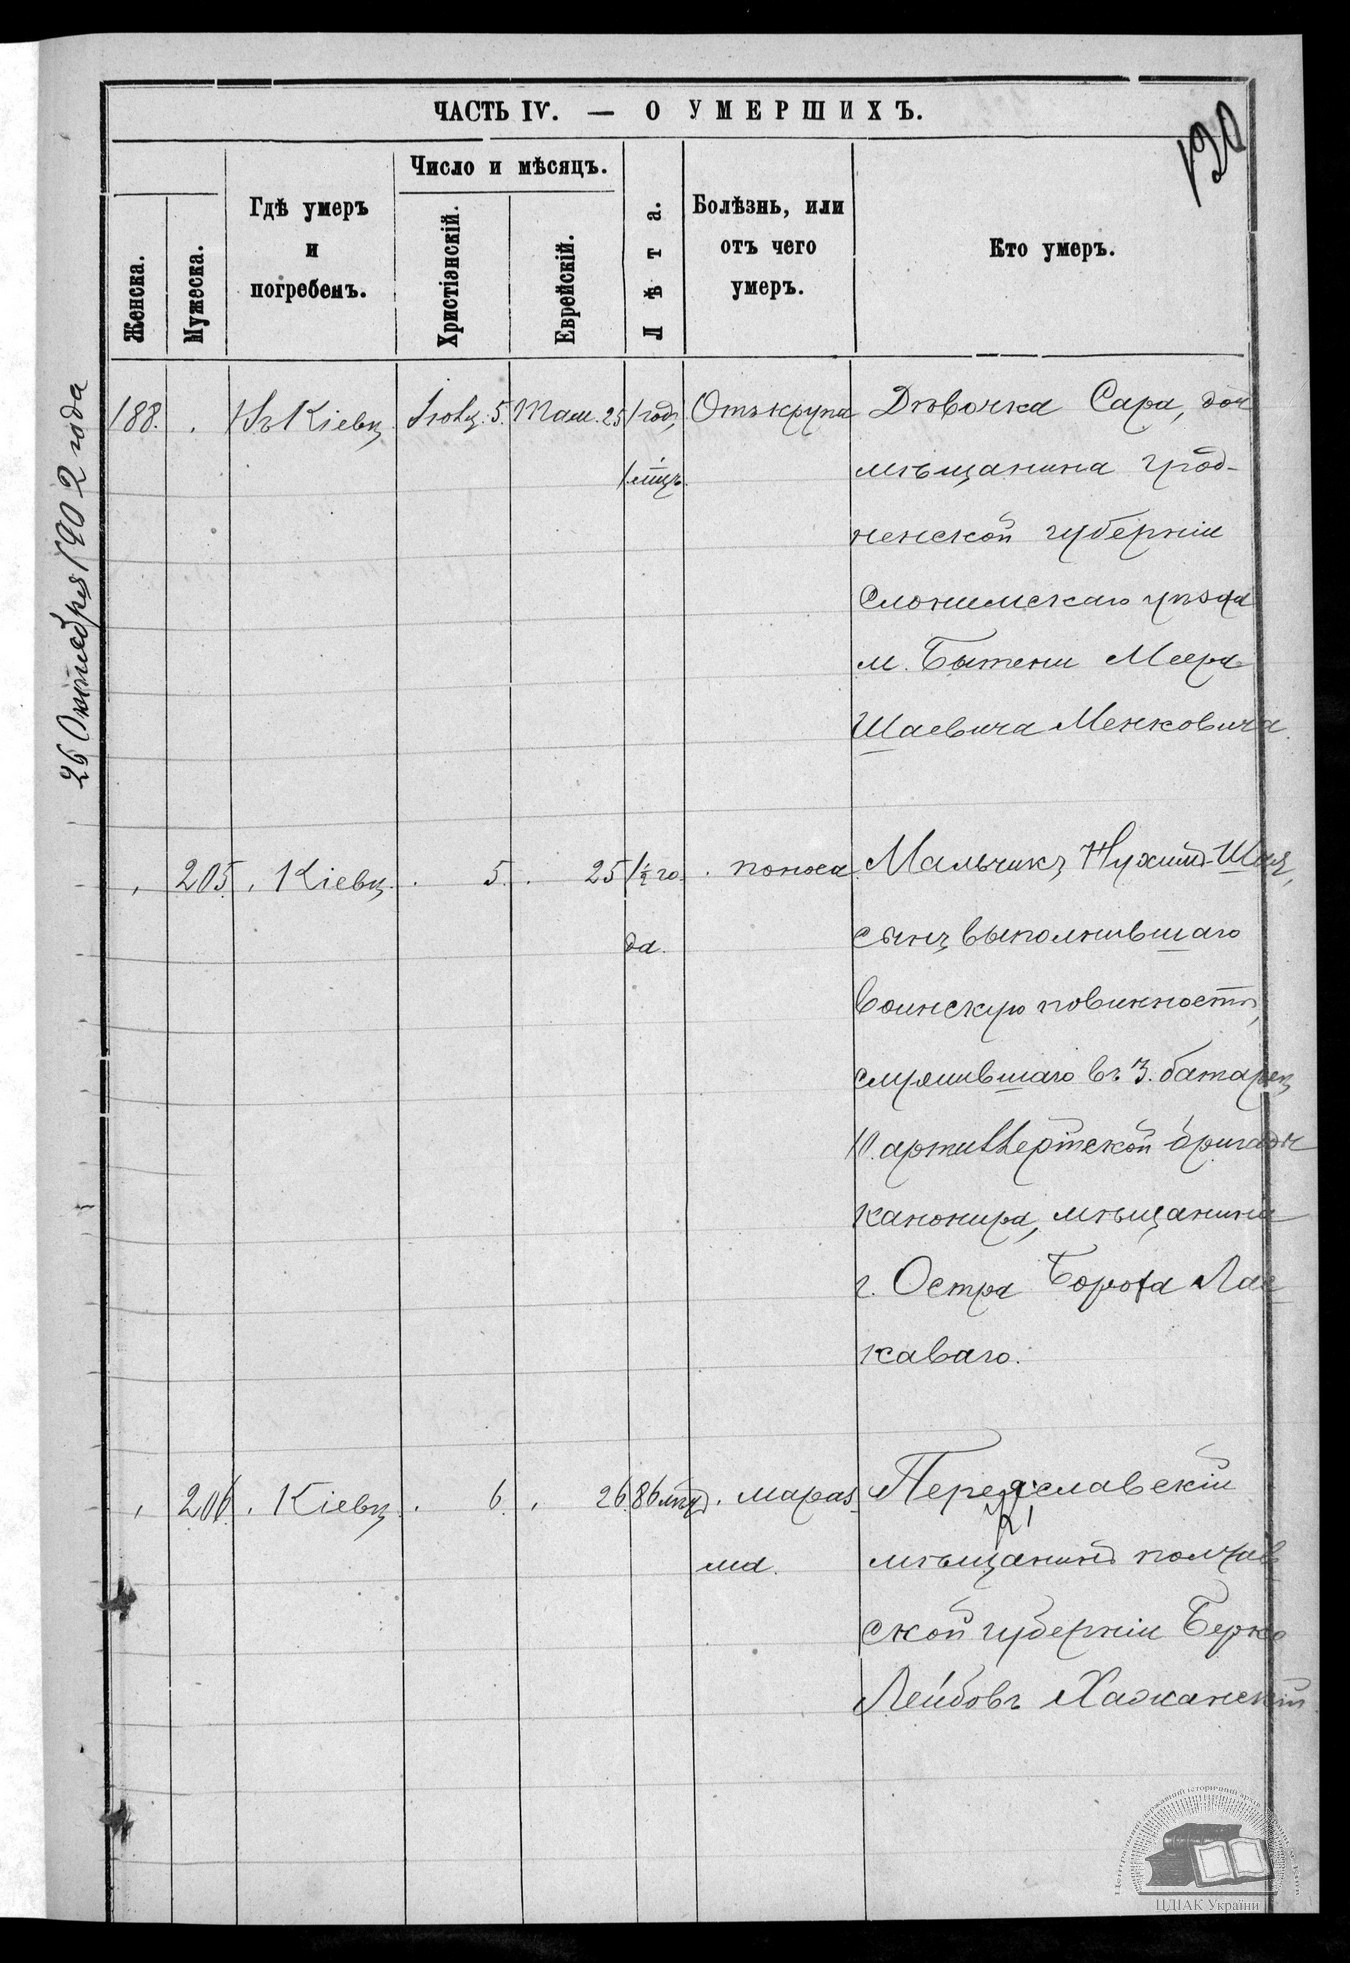 ЧАСТЬ IV. — О УМЕРШИХЪ.
130
Женска.
Мужеска.
Гдѣ умеръ
и
погребенъ.
Число и мѣсяцъ.
Христіанскій.
Еврейскій.
Лѣта.
Болѣзнь, или
отъ чего
умеръ.
Кто умеръ.
26 Октября 1902 года
188. . Въ Кіевѣ Іюль. 5. Там. 25 1 годъ, Отъ крупа Дѣвочка Сара, доч
1 мѣц. мѣщанина Грод-
ненской губерніи
Слонимскаго уѣзда
м. Бытени Меера
Шаевича Менковича.
. 205. . Кіевѣ . 5. . 25 1½ го- . поноса Мальчикъ Нухимъ-Шая,
да. сынъ выполнившаго
воинскую повинность,
служившаго въ 3. батареѣ
10. артиллерійской бригады
канонира, мѣщанина
г. Остра Бороха Лас-
каваго.
. 206. . Кіевѣ . 6. . 26 86 лѣтъ . мараз- Переяславскій
ма. мѣщанинъ полтав
ской губерніи Берко
Лейбовъ Хажанскій
ЦДІАК України